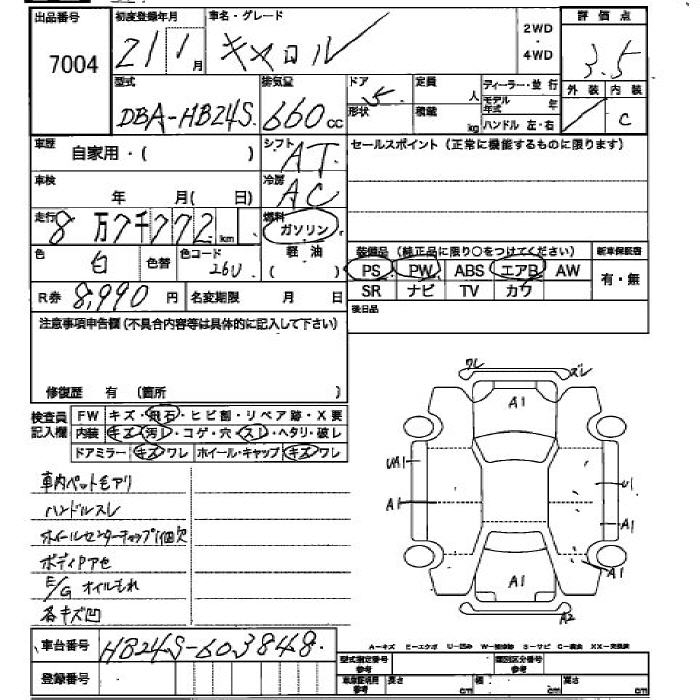 出品番号 初度登録年月 車名・グレード 2WD・4WD 評価点
7004 21 / 1 月 キャロル 3.5
型式 排気量 ドア 5 定員 人 ディーラー・並行 外装 内装
DBA-HB24S 660 cc 形状 積載 kg モデル年式 年 C
ハンドル 左・右
車歴 自家用・( ) シフト AT セールスポイント (正常に機能するものに限ります)
車検 年 月( 日) 冷房 AC
走行 8万7千772 km 燃料 ガソリン
軽油
( )
色 白 色替 色コード 26U
装備品 (純正品に限り○をつけてください) 新車保証書
PS PW ABS エアB AW 有・無
SR ナビ TV カワ
R券 8,990 円 名変期限 月 日 後日品
注意事項申告欄 (不具合内容等は具体的に記入して下さい)
修復歴 有 (箇所 )
検査員記入欄 FW キズ・飛石・ヒビ割・リペア跡・X要
内装 キズ・汚レ・コゲ・穴・スレ・ヘタリ・破レ
ドアミラー キズ・ワレ ホイール・キャップ キズ・ワレ
ワレ ズレ
A1
UA1 U1
A1 A1
A1
A1
A2
車内ペット毛アリ
ハンドルスレ
ホイールセンターキャップ1個欠
ボディPアセ
E/G オイルもれ
各キズ凹
A-キズ E-エクボ U-凹み W-補修跡 S-サビ C-腐食 XX-交換済
車台番号 HB24S-603848
登録番号
型式指定番号参考 類別区分番号参考
車庫証明用参考 長さ cm 幅 cm 高さ cm